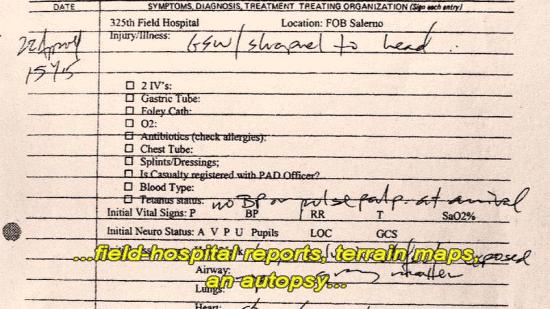 DATE SYMPTOMS, DIAGNOSIS, TREATMENT TREATING ORGANIZATION (Sign each entry)
325th Field Hospital Location: FOB Salerno
22 Apr 04
1545
Injury/Illness: GSW/shrapnel to head
☐ 2 IV's:
☐ Gastric Tube:
☐ Foley Cath:
☐ O2:
☐ Antibiotics (check allergies):
☐ Chest Tube:
☐ Splints/Dressings;
☐ Is Casualty registered with PAD Officer?
☐ Blood Type:
☐ Tetanus status: no BP or pulse palp. at arrival
Initial Vital Signs: P BP RR T SaO2%
Initial Neuro Status: A V P U Pupils LOC GCS
...field-hospital reports, terrain maps,
an autopsy...
exposed
Airway: gray matter
Lungs:
Heart: